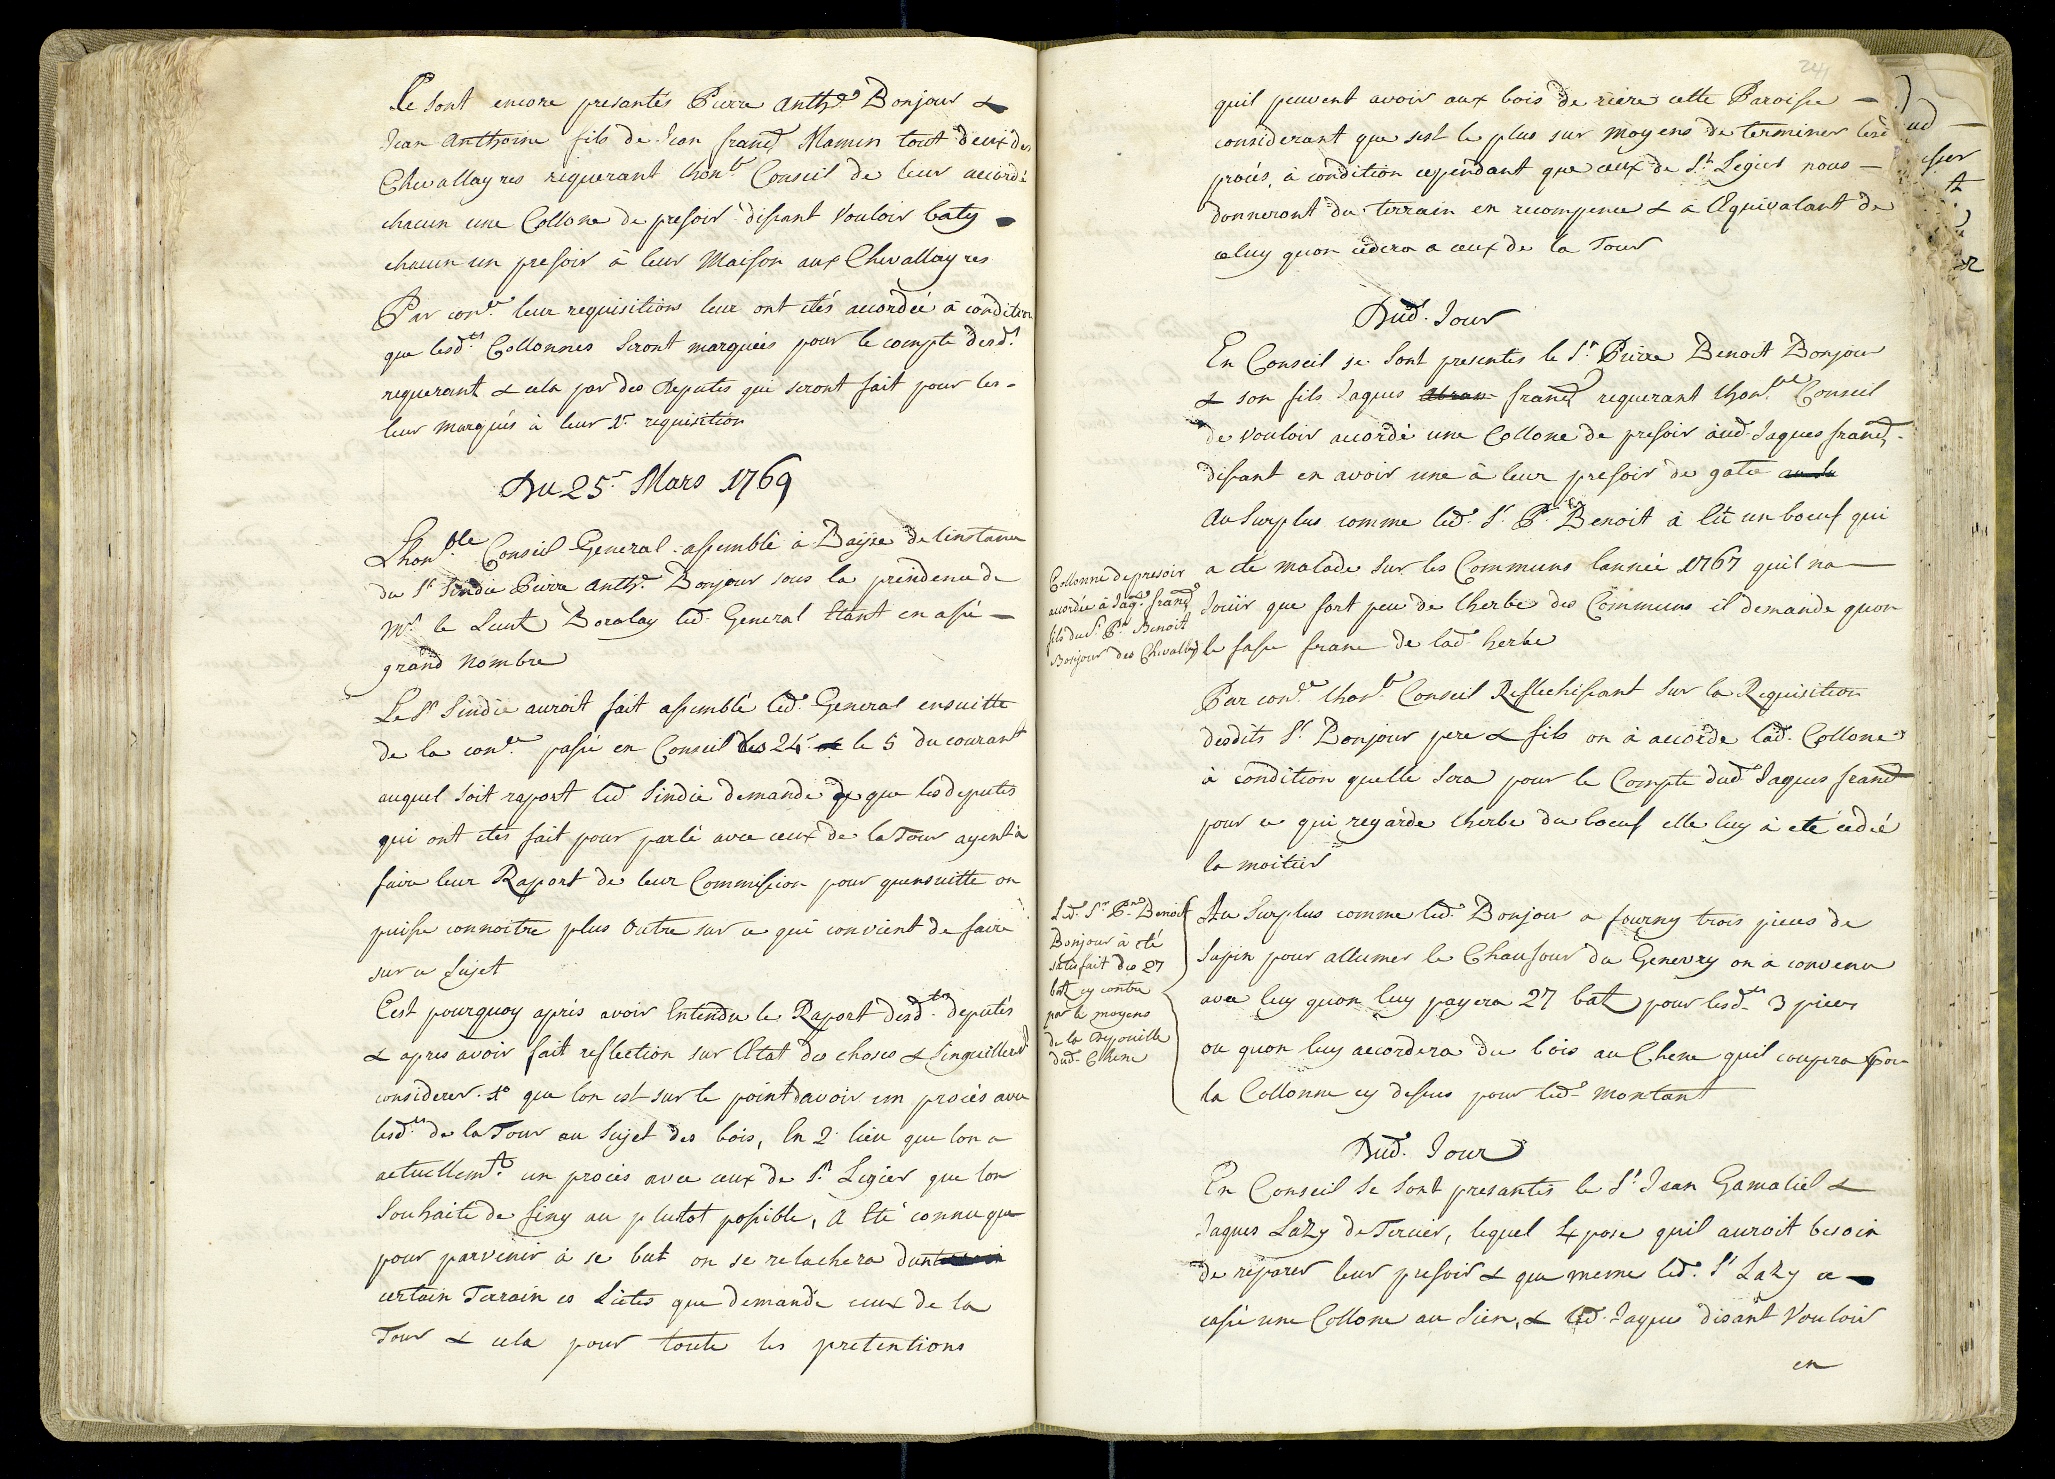 Se sont encore presantés Pierre Anth.ne Bonjour &
Jean Anthoine fils de Jean franç Mamin tout deux des
Chevallayres requerant lhon.ble Conseil de leur accordé
chacun une Collone de presoir disant Vouloir baty
chacun un presoir à leur Maison aux Chevallayres
Par con.ce leur requisitions leur ont etés accordée à condition
que lesd.tes Collonnes seront marquées pour le compte desd.t
requerant & cela par des Deputés qui seront fait pour les
leur marqués à leur 1.e requisition
Du 25.e Mars 1769
Lhon.ble Conseil General assemblé à Bayse de linstance
du S.r Sindic Pierre Anth.e Bonjour sous la presidence de
M.r le Lieut Doralay led. General Etant en assé
grand Nombre
Le S.r Sindic auroit fait assemblé led. General ensuitte
de la con.ce passé en Conseil des 24 & le 5 du courant
auquel soit raport led Sindic demande que les deputés
qui ont etés fait pour parlé avec ceux de la Tour ayent à
faire leur Raport de leur Commission pour quensuitte on
puisse connoitre plus Outre sur ce qui convient de faire
sur ce Sujet
Cest pourquoy aprés avoir Entendu le Raport desd.ts deputés
& apres avoir fait reflection sur lEtat des choses & singuillierem.t
considerer 1.o que lon est sur le point davoir un procés avec
lesd.ts de la Tour au Sujet des bois, En 2 lieu que lon a
actuellem.t un procés avec ceux de S.t Legier que lon
Souhaite de finy au plutot possible, A Eté connu que
pour parvenir à se but on se relachera dun
certain Terrain es Sietes que demande ceux de la
Tour & cela pour toute les pretentions
24
quil peuvent avoir aux bois de riere cette Paroisse
considerant que sest le plus sur moyens de terminer led
procés, à condition cependant que ceux de S.t Legier nous
donneront du terrain en recompence & a lEquivalant de
celuy quon cedera a ceux de la Tour
Dud. Jour
En Conseil se sont presentés le S.r Pierre Benoit Bonjour
& son fils Jaques franç requerant lhon.ble Conseil
de vouloir accordé une Collone de presoir aud. Jaques franç
disant en avoir une à leur presoir de gatée
Au Surplus comme led. S.r P.re Benoit à Eü un boeuf qui
a eté malade sur les Communs lannée 1767 quil na
Joüir que fort peu de lherbe des Communs il demande quon
le fasse franc de lad herbe
Collonne de presoir
accordée à Jaq.s franç
fils du S.r P.re Benoit
Bonjour des Chevally
Par con.ce lhon.ble Conseil Reflechissant sur la Requisition
desdits S.r Bonjour pere & fils on à accorde lad. Collone
à condition quelle sera pour le Compte dud Jaques franç
pour ce qui regarde lherbe du boeuf elle luy à eté cedée
la moitier
Led. S.r P.re Benoit
Bonjour à eté
satisfait des 27
batz cy contre
par le moyens
de la Depouille
dud. Chene
Au Surplus comme led. Bonjour a fourny trois pieces de
Sapin pour allumer le Chaufour du Genevry on à convenu
avec luy quon luy payera 27 batz pour lesd.tes 3 pieces
ou quon luy accordera du bois au Chene quil coupera pour
la Collonne cy dessus pour led. montant
Dud. Jour
En Conseil Se Sont presantés le S.r Jean Gamaliel &
Jaques Lazy de Tercier, lequel Expose quil auroit besoin
de réparer leur presoir & que meme led. S.r Lazy a
cassé une Collone au Sien, & led. Jaques disant Vouloir
en